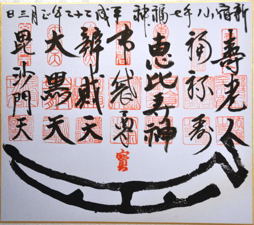 新宿山ノ手七福神 平成二十七年正月三日
寿老人
福禄寿
恵比寿神
布袋尊
辯財天
大黒天
毘沙門天
寳